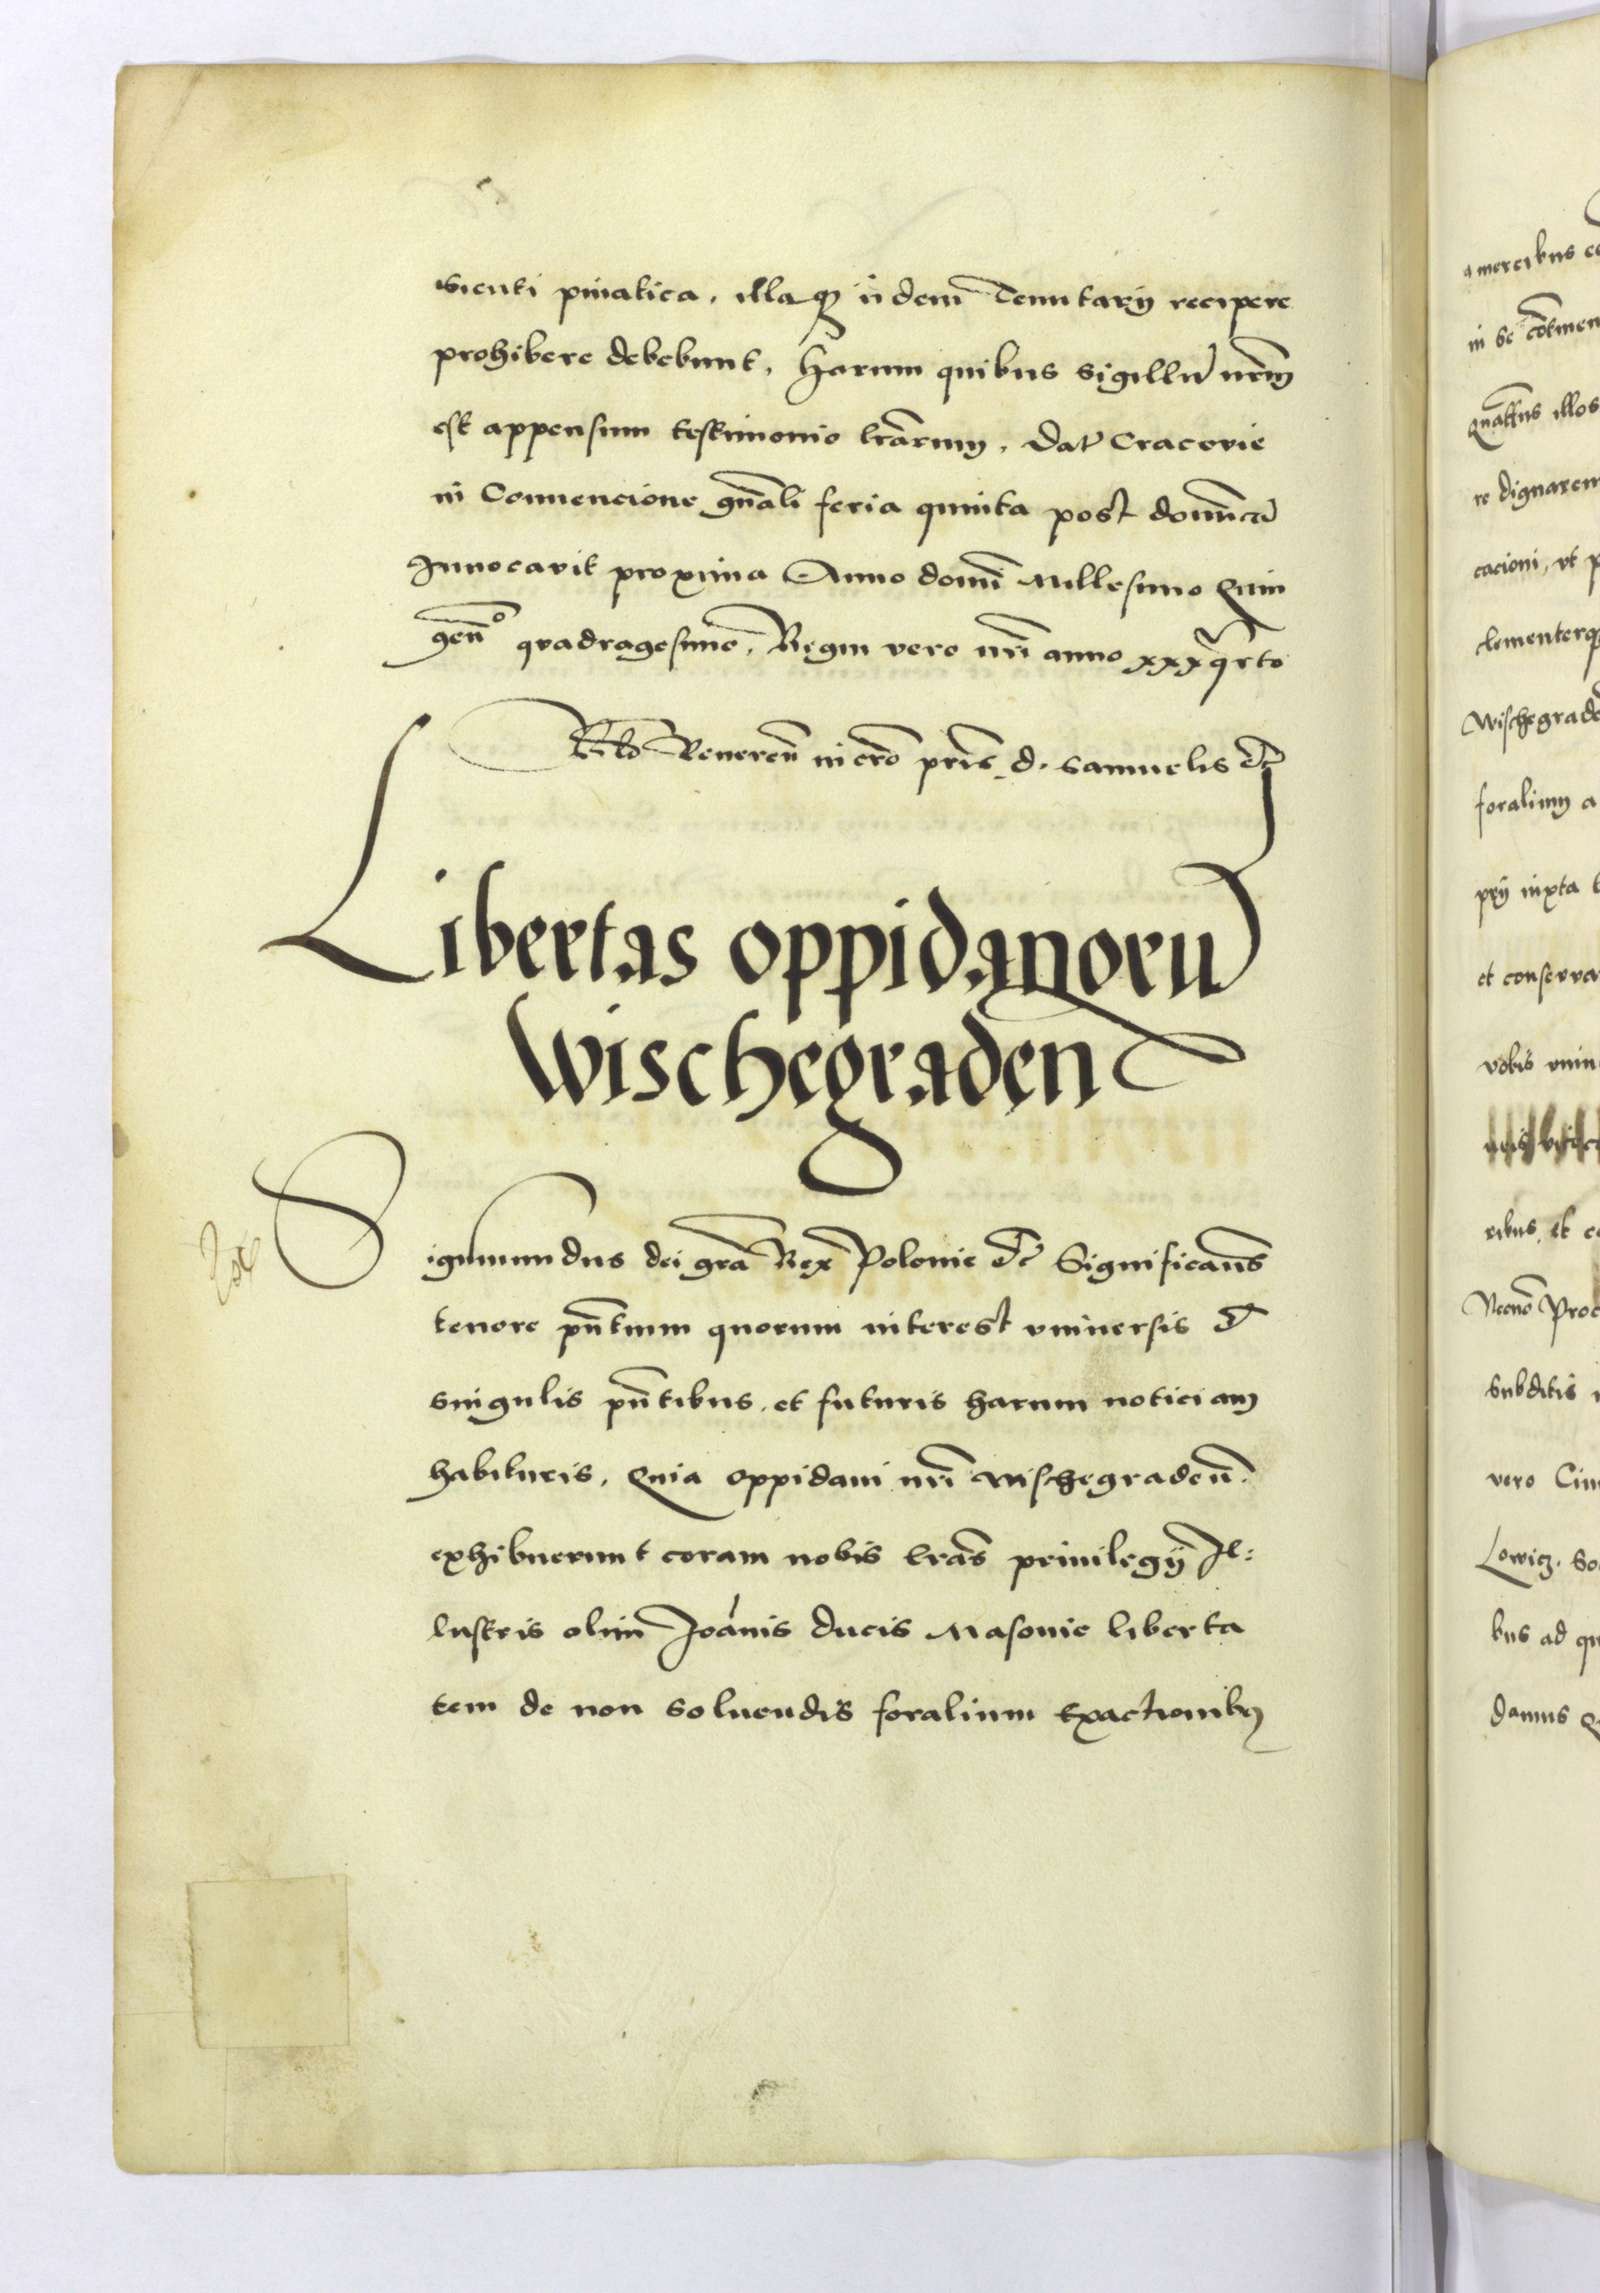 sicuti priuatica, illaqz iidem Tenutarij recipere
prohibere debebunt, harum quibus sigillu nrm
est appensum testimonio lrarum, Dat Cracovie
in Conuencione gnali feria quinta post domca
Inuocavit proxima Anno domi Millesimo Quin
geno quadragesimo, Regni vero nri anno xxxqrto
Rlo Reueren in cro pris d. Samuelis etc
Libertas oppidanoru
Wischegraden
igismundus dei gra Rex Polonie etc Significans
tenore pntium quorum interest vniuersis et
singulis pntibus, et futuris harum noticiam
habituris, Quia oppidani nri Wischegraden.
exhibuerunt coram nobis lras priuilegij Il:
lustris olim Joanis ducis Masouie liberta
tem de non soluendis foralium Exactionibz
a mercibus
in se
illos
re
cacioni, vt
clementerqz
Wischegrade
foralium a
prij iuxta
et conserva
vobis
ribus, et
Necno Proc
Subditis
vero
Lowicz.
bus ad
damus